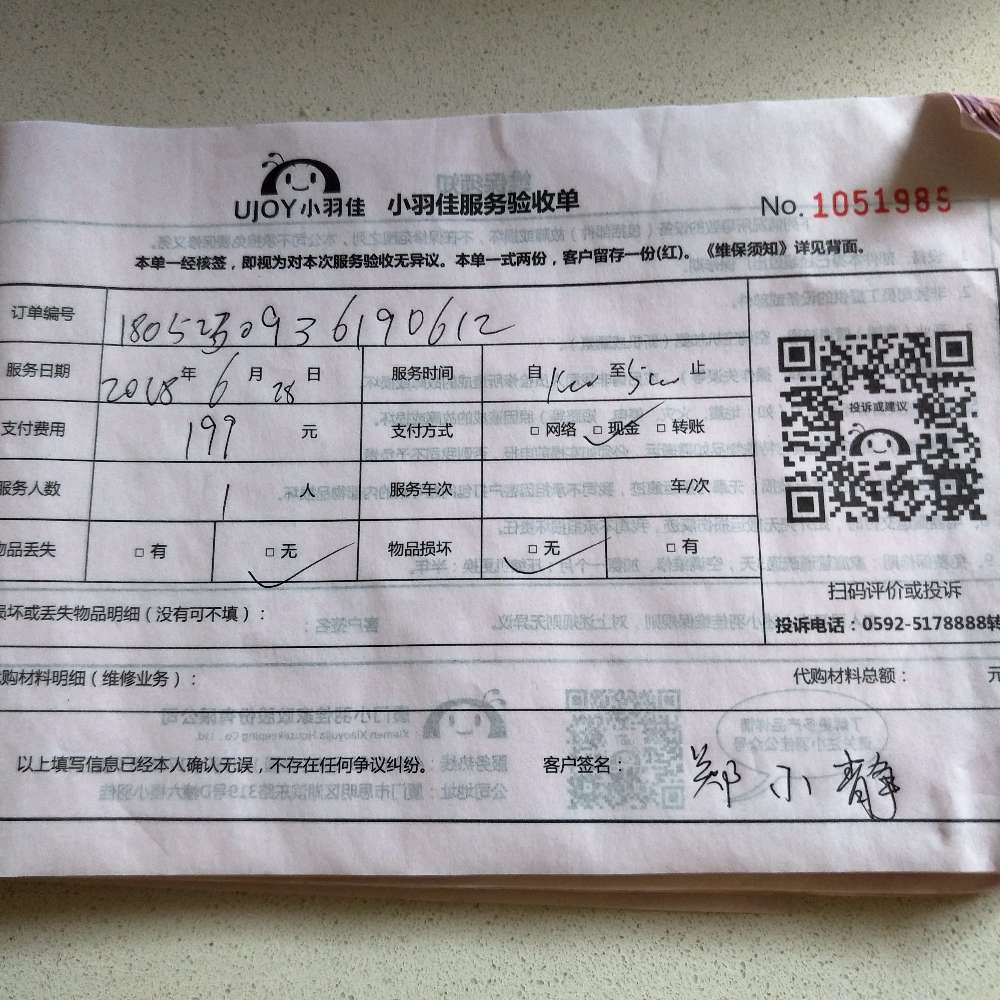 UJOY小羽佳 小羽佳服务验收单
No. 1051985
本单一经核签，即视为对本次服务验收无异议。本单一式两份，客户留存一份(红)。《维保须知》详见背面。
订单编号
服务日期 2018年6月28日 服务时间 自 至 止
支付费用 199 元 支付方式 □ 网络 □ 现金 □ 转账
服务人数 1 人 服务车次 车/次
物品丢失 □ 有 □ 无 物品损坏 □ 无 □ 有
投诉或建议
扫码评价或投诉
投诉电话：0592-5178888转
损坏或丢失物品明细（没有可不填）：
代购材料明细（维修业务）： 代购材料总额： 元
以上填写信息已经本人确认无误，不存在任何争议纠纷。 客户签名： 郑小静